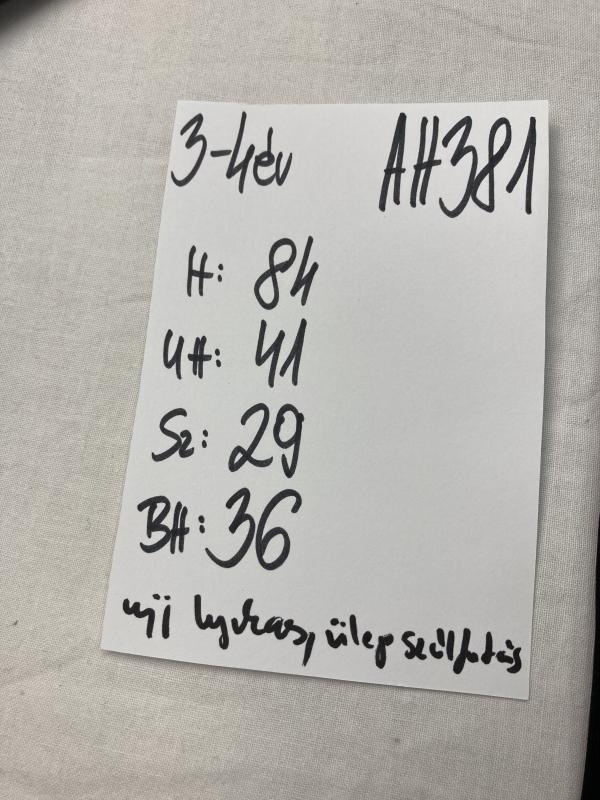 3-4év AH381
H: 84
UH: 41
Sz: 29
BH: 36
ujj lyukas, ülep szálfutás